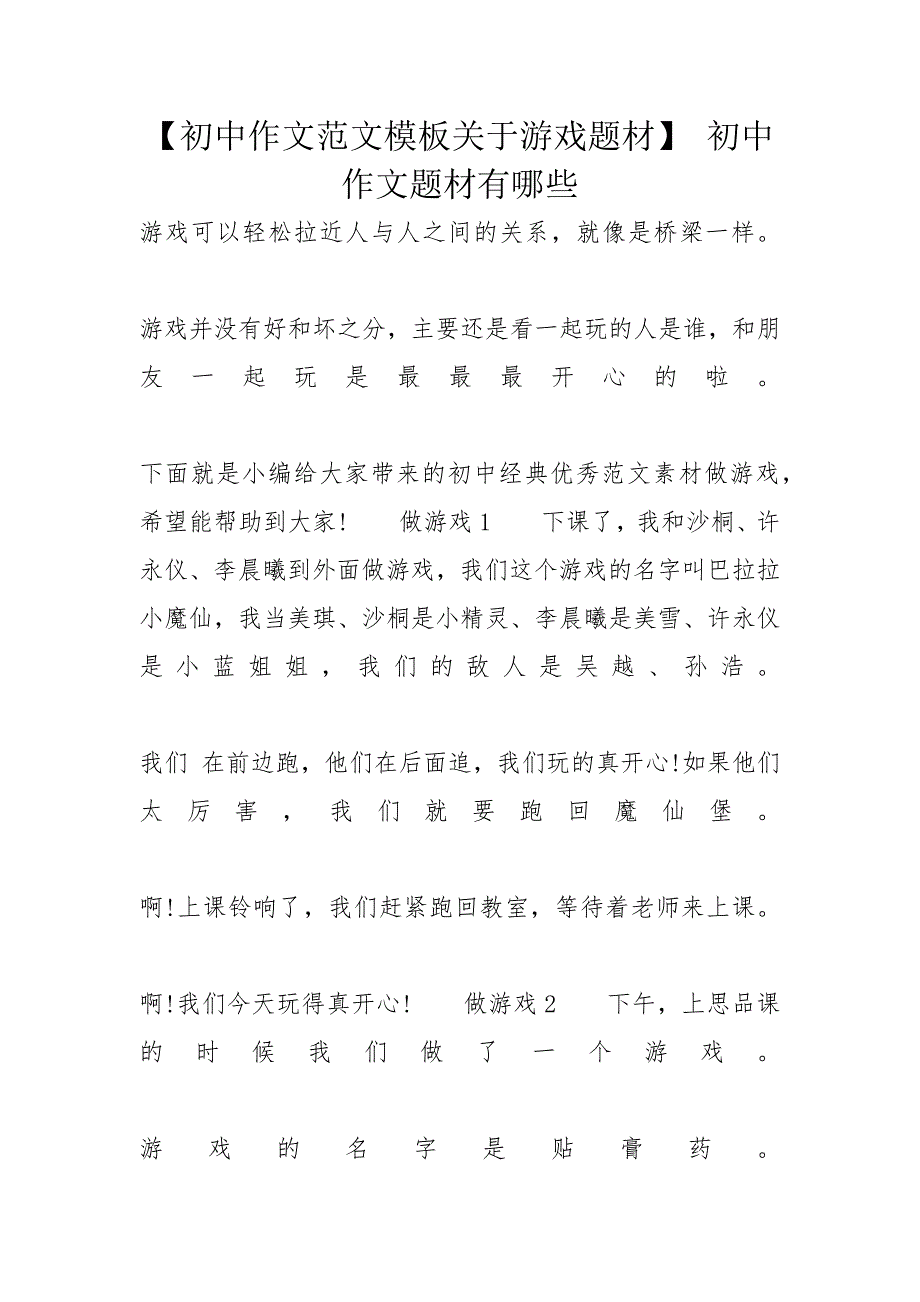 【初中作文范文模板关于游戏题材】 初中
作文题材有哪些
游戏可以轻松拉近人与人之间的关系，就像是桥梁一样。
游戏并没有好和坏之分，主要还是看一起玩的人是谁，和朋
友一起玩是最最最开心的啦。
下面就是小编给大家带来的初中经典优秀范文素材做游戏，
希望能帮助到大家! 做游戏1 下课了，我和沙桐、许
永仪、李晨曦到外面做游戏，我们这个游戏的名字叫巴拉拉
小魔仙，我当美琪、沙桐是小精灵、李晨曦是美雪、许永仪
是小蓝姐姐，我们的敌人是吴越、孙浩。
我们 在前边跑，他们在后面追，我们玩的真开心!如果他们
太厉害，我们就要跑回魔仙堡。
啊!上课铃响了，我们赶紧跑回教室，等待着老师来上课。
啊!我们今天玩得真开心! 做游戏2 下午，上思品课
的时候我们做了一个游戏。
游戏的名字是贴膏药。